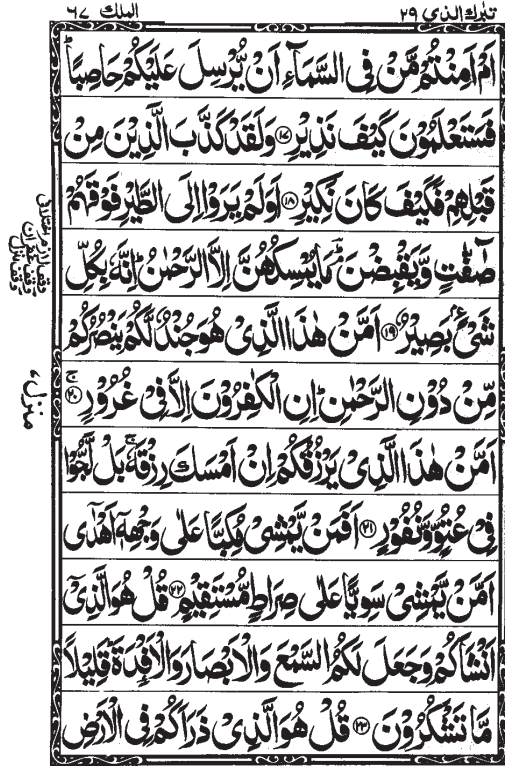 تبٰرك الذی ۲۹
الملك ۶۷
اَمْ اَمِنْتُمْ مَّنْ فِی السَّمَآءِ اَنْ یُّرْسِلَ عَلَیْكُمْ حَاصِبًا ؕ
فَسَتَعْلَمُوْنَ كَیْفَ نَذِیْرِ ﴿۱۷﴾ وَلَقَدْ كَذَّبَ الَّذِیْنَ مِنْ
قَبْلِهِمْ فَكَیْفَ كَانَ نَكِیْرِ ﴿۱۸﴾ اَوَلَمْ یَرَوْا اِلَی الطَّیْرِ فَوْقَهُمْ
صٰٓفّٰتٍ وَّیَقْبِضْنَ ؔۘ مَا یُمْسِكُهُنَّ اِلَّا الرَّحْمٰنُ ؕ اِنَّهٗ بِكُلِّ
شَیْءٍۭ بَصِیْرٌ ﴿۱۹﴾ اَمَّنْ هٰذَا الَّذِیْ هُوَ جُنْدٌ لَّكُمْ یَنْصُرُكُمْ
مِّنْ دُوْنِ الرَّحْمٰنِ ؕ اِنِ الْكٰفِرُوْنَ اِلَّا فِیْ غُرُوْرٍ ﴿۲۰﴾ ۚ
اَمَّنْ هٰذَا الَّذِیْ یَرْزُقُكُمْ اِنْ اَمْسَكَ رِزْقَهٗ ۚ بَلْ لَّجُّوْا
فِیْ عُتُوٍّ وَّنُفُوْرٍ ﴿۲۱﴾ اَفَمَنْ یَّمْشِیْ مُكِبًّا عَلٰی وَجْهِهٖۤ اَهْدٰۤی
اَمَّنْ یَّمْشِیْ سَوِیًّا عَلٰی صِرَاطٍ مُّسْتَقِیْمٍ ﴿۲۲﴾ قُلْ هُوَ الَّذِیْۤ
اَنْشَاَكُمْ وَجَعَلَ لَكُمُ السَّمْعَ وَالْاَبْصَارَ وَالْاَفْـِٕدَةَ ؕ قَلِیْلًا
مَّا تَشْكُرُوْنَ ﴿۲۳﴾ قُلْ هُوَ الَّذِیْ ذَرَاَكُمْ فِی الْاَرْضِ
منزل ۷